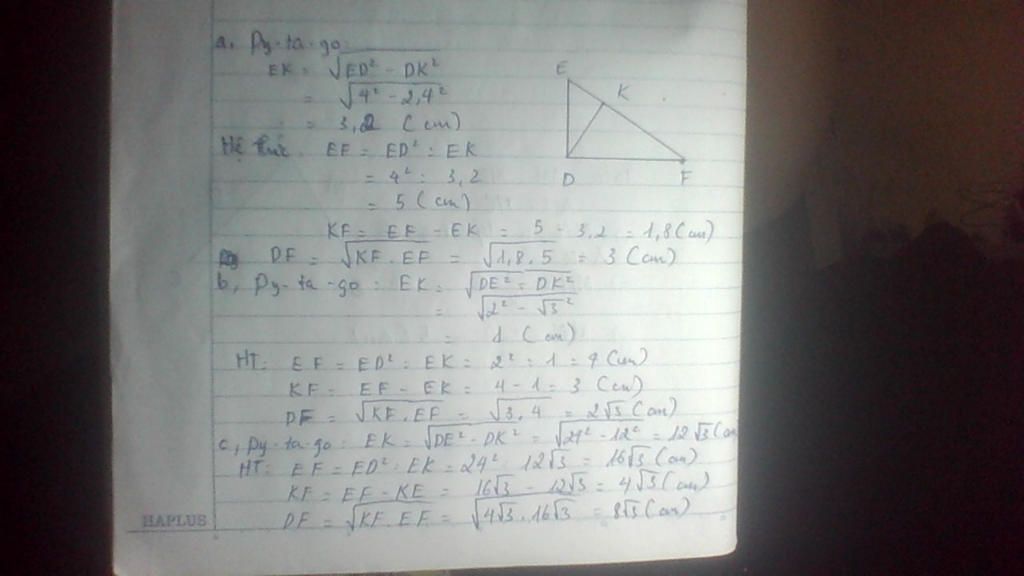 a, Py-ta-go:
EK = √ED² - DK²
= √4² - 2,4²
= 3,2 (cm)
Hệ thức EF = ED² : EK
= 4² : 3,2
= 5 (cm)
KF = EF - EK = 5 - 3,2 = 1,8 (cm)
DF = √KF . EF = √1,8 . 5 = 3 (cm)
b, Py-ta-go : EK = √DE² - DK²
= √2² - √3²
= 1 (cm)
HT: EF = ED² : EK = 2² : 1 = 4 (cm)
KF = EF - EK = 4 - 1 = 3 (cm)
DF = √KF . EF = √3 . 4 = 2√3 (cm)
c, Py-ta-go : EK = √DE² - DK² = √24² - 12² = 12√3 (cm
HT: EF = ED² : EK = 24² : 12√3 = 16√3 (cm)
KF = EF - KE = 16√3 - 12√3 = 4√3 (cm)
DF = √KF . EF = √4√3 . 16√3 = 8√3 (cm)
E
K
D
F
HAPLUS